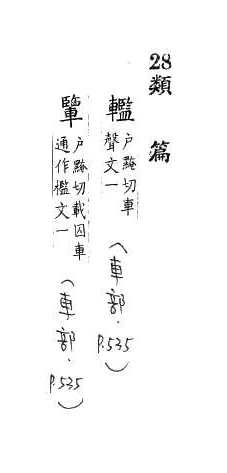 28 類篇
轞 户黤切車
聲文一
(車部.P.535)
户黤切載囚車
通作檻文一
(車部.P.535)